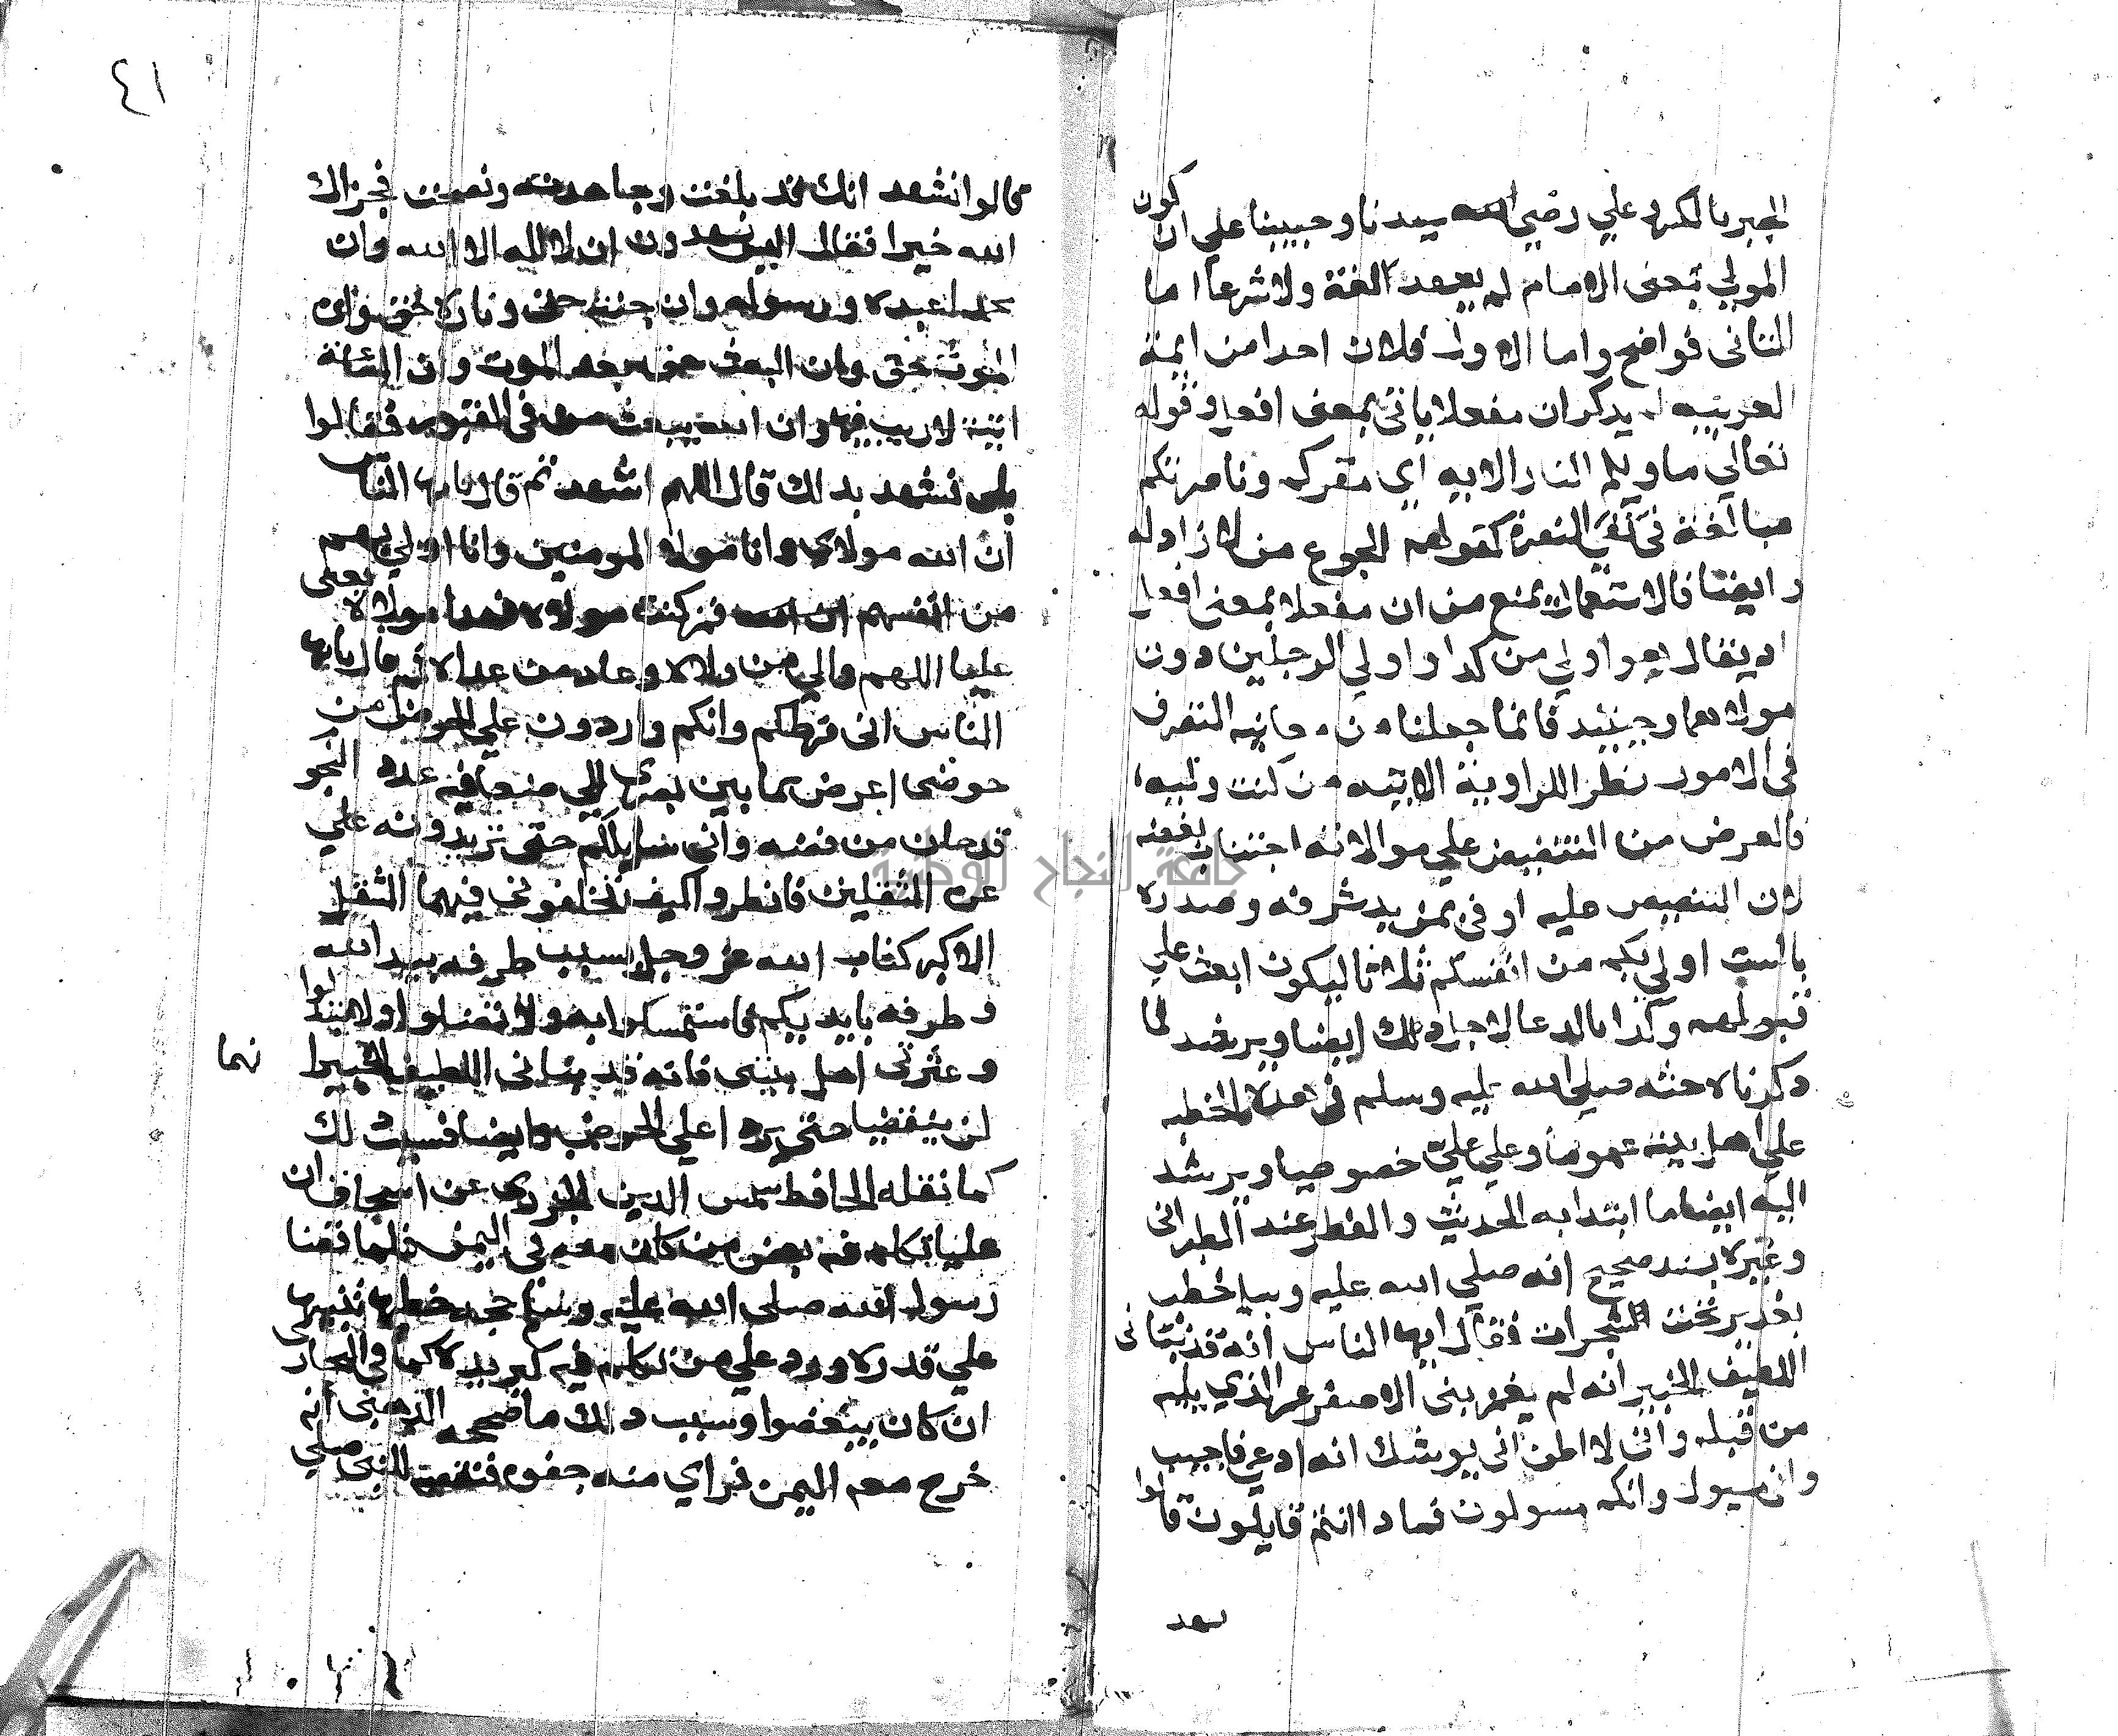 الخبر بالمكره علي رضي الله سيدنا وحبيبنا علي ان كون
المولي بمعنى الامام لم يعهد لغة ولا شرعا اما
الثاني فواضح واما الاول فلان احدا من ايمة
العربيه لم يذكر ان مفعلا ياتي بمعنى افعل وقوله
تعالي ماويكم النار الايه اي مقركم وناصرتكم
مبالغة في نفي النصرة كقولهم الجوع من لا زاد له
وايضا فالاستعمال يمنع من ان مفعلا بمعنى افعل
اذ يقال هو اولي من كذا واولي الرجلين دون
مولاهما وحينئيد فانما جعلنا من معانيه المتصرف
في الامور نظر اللراوية الاتيه من كنت وليه
فالغرض من التنصيص علي موالاته اجتناب بغضه
لان التنصيص عليه اوفى بمزيد شرفه وصدره
بالست اولي بكم من انفسكم ثلاثا ليكون ابعث علي
قبولهم وكذا بالدعا لاجل ذلك ايضا ويرشد لما
ذكرنا لا حثه صلي الله عليه وسلم في هده الخطبه
علي اهل بيته عموما وعلي علي خصوصيا ويرشد
اليه ايضا ما ابتدا به الحديث ولفظ عند الطبراني
وغيره بسند صحيح انه صلي الله عليه وسلم خطب
بغدير تحت شجرات فقال ايها الناس انه قد نباني
اللطيف الخبير انه لم يعمر بني الا نصف عمر الذي يليه
من قبله واني لا اظن اني يوشك انه ادعي فاجيب
واني مسيول وانكم مسولون فماذا انتم قايلون قالوا
نسهد
٤١
قالوا نشهد انك قد بلغت وجاهدت ونصحت فجزاك
الله خيرا فقال اليس تشهدون ان لا اله الا الله وان
محمدا عبده ورسوله وان جنته حق وناره حق وان
الموت حق وان البعث حق بعد الموت وان الساعة
اتية لا ريب فيها وان الله يبعث من في القبور فقالوا
بلى نشهد بدلك قال اللهم اشهد ثم قال يا ايها الناس
ان الله مولاي وانا مولا المومنين وانا اولي بهم
من انفسهم فمن كنت مولاه فهدا مولاه يعني
عليا اللهم والي من ولاه وعاد من عداه ثم قال يا ايها
الناس اني فرطكم وانكم واردون علي الحوض من
حوضي اعرض مما بين بصرى الي صنعا فيه عدد النجو
قد حان من فضه واني سايلكم حتى تردون علي
عن الثقلين فانظروا كيف تخلفوني فيهما الثقل
الاكبر كتاب الله عز وجل سبب طرفه بيد الله
وطرفه بايديكم فاستمسكوا به ولا تضلوا ولا تبدلوا
وعثرتي اهل بيتي فانه قد نباني اللطيف الخبير
نهما
لن ينقضيا حتى يردا علي الحوض وايضا فسبب ذلك
كما نقله الحافظ شمس الدين الجزري عن اسحاق ان
عليا تكلم فيه بعض من كان معه في اليمن فلما قضا
رسول الله صلي الله عليه وسلم حجه خطبها تنبيها
علي قدره ورد علي من تكلم فيه كبريده كما في البخاري
ان كان يبغضوا وسبب دلك ما صححه الذهبى انه
خرج معه اليمن فراي منه جفوه فنقصه للنبي صلي
جامعة النجاح الوطنية